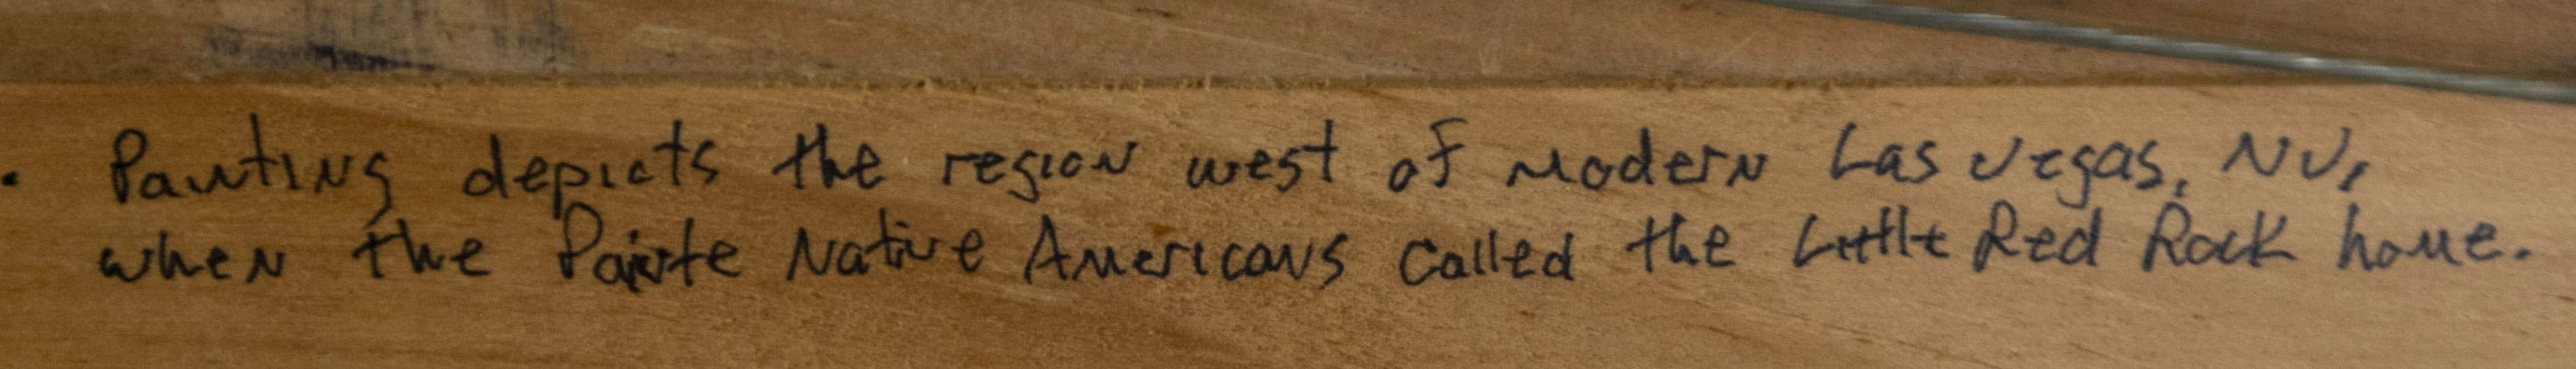 . Painting depicts the region west of modern Las Vegas, NV,
when the Paiute Native Americans called the Little Red Rock home.